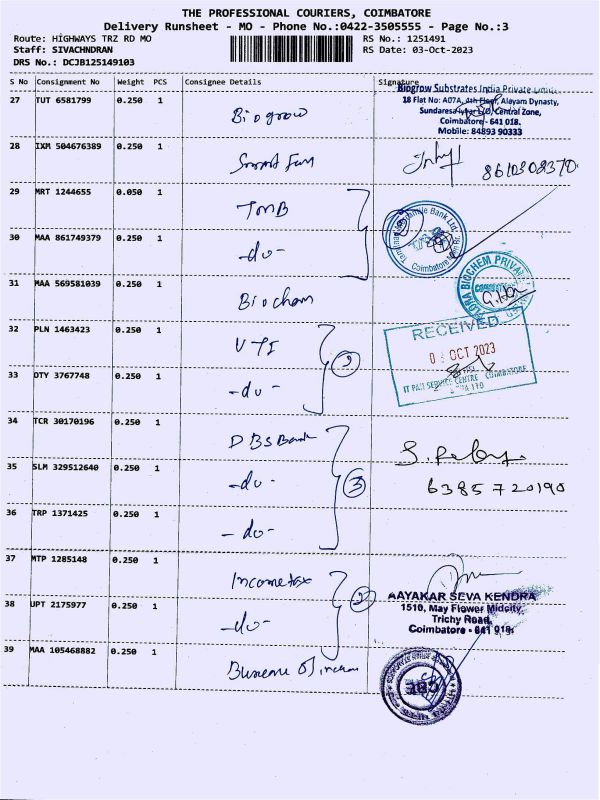 THE PROFESSIONAL COURIERS, COIMBATORE
Delivery Runsheet - MO - Phone No.:0422-3505555 - Page No.:3
Route: HIGHWAYS TRZ RD MO
RS No.: 1251491
Staff: SIVACHNDRAN
RS Date: 03-Oct-2023
DRS No.: DCJB125149103
S No Consignment No Weight PCS Consignee Details Signature
27 TUT 6581799 0.250 1 Biogrow
Biogrow Substrates India Private
18 Flat No: A07A, 4th Floor, Alayam Dynasty,
Central Zone,
Coimbatore - 641 018.
Mobile: 84893 90333
28 IXM 504676389 0.250 1 8610308370
29 MRT 1244655 0.050 1 TMB
Mercantile Bank Ltd.
Coimbatore
30 MAA 861749379 0.250 1 -do-
31 MAA 569581039 0.250 1 Biochem
BIOCHEM PRIVATE
32 PLN 1463423 0.250 1 UTI
RECEIVED
OCT 2023
IT PAN SERVICE CENTRE COIMBATORE
33 DTY 3767748 0.250 1 -do-
34 TCR 30170196 0.250 1 DBS Bank
35 SLM 329512640 0.250 1 -do- 3 6385720190
36 TRP 1371425 0.250 1 -do-
37 MTP 1285148 1 Income tax
AAYAKAR SEVA KENDRA
1510, May Flower Midcity,
Trichy Road,
Coimbatore - 641 018.
38 UPT 2175977 0.250 1 -do- 2
39 MAA 105468882 0.250 1 Bureau of